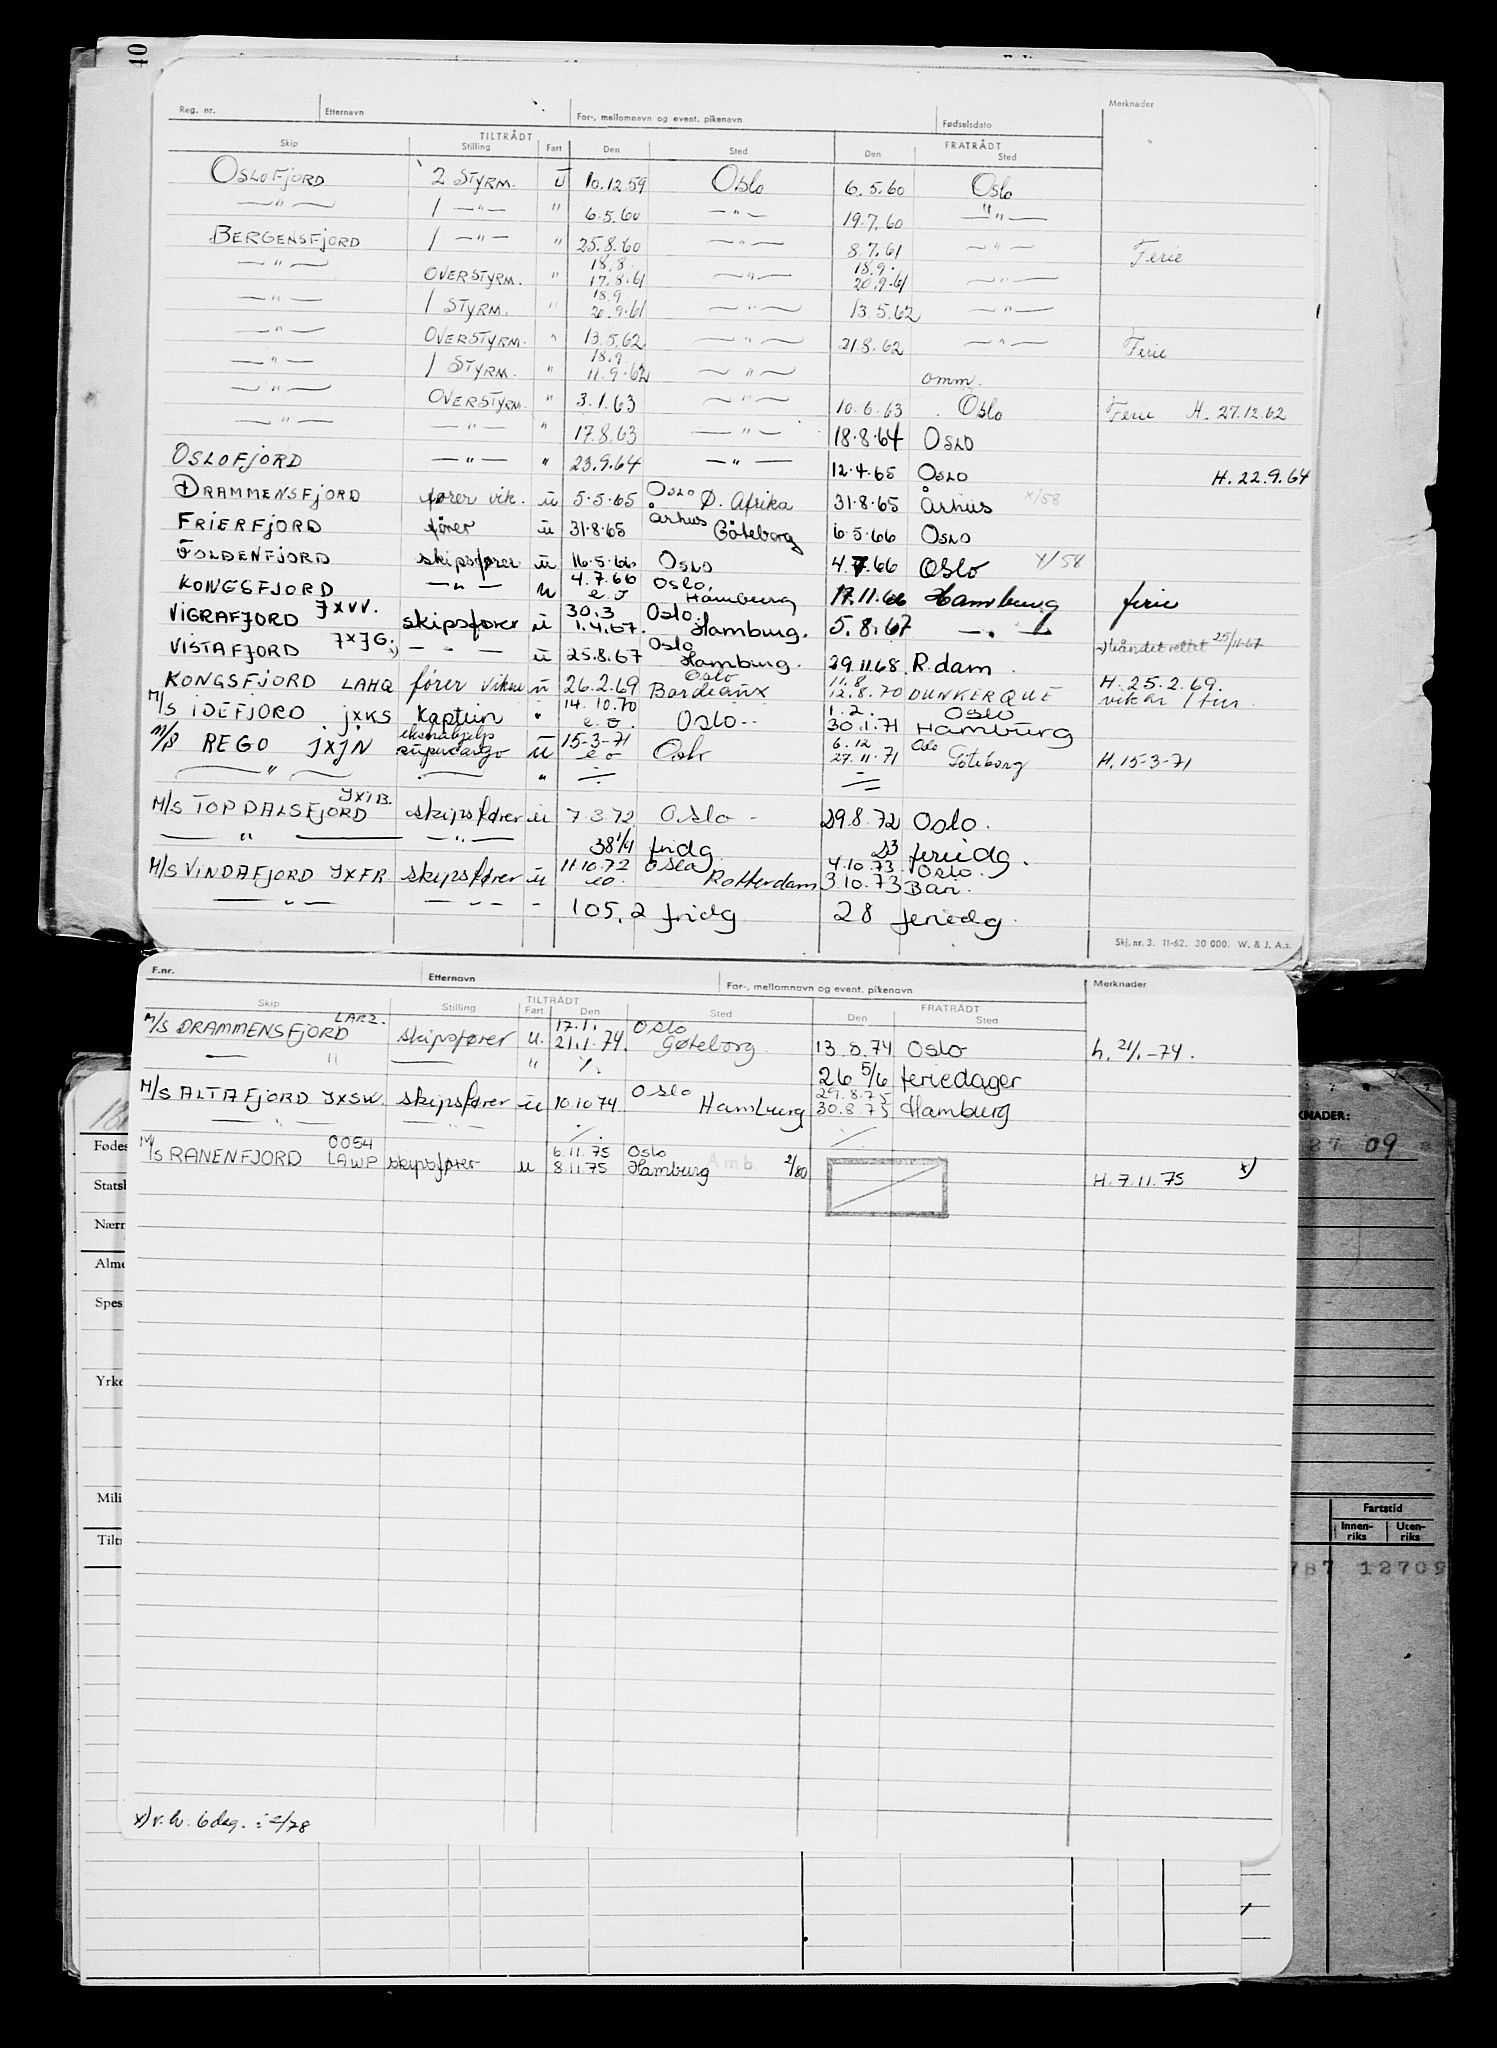 40
Reg. nr. Etternavn For-, mellomnavn og event. pikenavn Fødselsdato Merknader
TILTRÅDT FRATRÅDT
Skip Stilling Fart Den Sted Den Sted
OSLOFJORD 2 STYRM. U 10.12.59 Oslo 6.5.60 Oslo
— " — 1 — " — " 6.5.60 — " — 19.7.60 — " —
BERGENSFJORD 1 — " — " 25.8.60 — " — 8.7.61 — " — Ferie
— " — OVERSTYRM. " 18.8. 17.8.61 — " — 18.9. 20.9.61 — " —
— " — 1 STYRM. " 18.9 20.9.61 — " — 13.5.62 — " —
— " — OVERSTYRM. " 13.5.62 — " — 21.8.62 — " — Ferie
— " — 1 STYRM. " 18.9. 11.9.62 — " — omm.
— " — OVERSTYRM. " 3.1.63 — " — 10.6.63 Oslo Ferie H. 27.12.62
— " — — " — " 17.8.63 — " — 18.8.64 OSLO
OSLOFJORD — " — " 23.9.64 — " — 12.4.65 OSLO H. 22.9.64
DRAMMENSFJORD fører vik. u 5.5.65 OSLO Ø. Afrika 31.8.65 Århus x/58
FRIERFJORD fører u 31.8.65 Århus Göteborg 6.5.66 OSLO
FOLDENFJORD skipsfører u 16.5.66 OSLO 4.7.66 OSLO x/58
KONGSFJORD — " — u 4.7.66 e.o Oslo. Hamburg 17.11.66 Hamburg ferie
VIGRAFJORD JXVV. skipsfører u 30.3 1.4.67. Oslo. Hamburg. 5.8.67 — " —
VISTAFJORD JXJG. — " — u 25.8.67 Oslo Hamburg. 29.11.68 R.dam. 25/11-67
KONGSFJORD LAHQ fører vikar u 26.2.69 Oslo Bordeaux 11.8 12.8.70 DUNKERQUE H. 25.2.69. vik for 1 tur.
M/S IDEFJORD JXKS Kaptein " 14.10.70 e.o. Oslo 1.2. 30.1.71 Oslo Hamburg
M/S REGO JXJN ekstrahjelp supercargo u 15-3-71 e o Oslo 6.12 27.11.71 Oslo Göteborg H. 15-3-71
— " — — " ÷ ÷
M/S TOPDALSFJORD JXIB. skipsfører u 7.3.72 Oslo 29.8.72 Oslo.
— " — — " — 38 1/4 fridg. 23 feriedg.
M/S VINDAFJORD JXFR skipsfører u 11.10.72 eo. Oslo Rotterdam 4.10.73 3.10.73 Oslo. Bari.
— " — — " — " 105,2 fridg 28 feriedg.
Skj. nr. 3. 11-62. 30 000. W. & J. A.s.
F.nr. Etternavn For-, mellomnavn og event. pikenavn Merknader
TILTRÅDT FRATRÅDT
Skip Stilling Fart Den Sted Den Sted
M/S DRAMMENSFJORD LARZ. skipsfører u. 17.1. 21.1.74. Oslo Gøteborg 13.8.74 Oslo h. 21/1-74.
— " — — " ÷ 26 5/6 feriedager
M/S ALTAFJORD JXSW. skipsfører u 10.10.74 Oslo Hamburg 29.8.75 30.8.75 Hamburg
— " — — " — ÷ ÷
M/S RANENFJORD 0054 LAWP skipsfører u 6.11.75 8.11.75 Oslo Hamburg Amb. 2/80 H. 7.11.75 x)
x) v.h. 6 dag. i 2/78
Fødes
Statsb
Nærm
Alme
Spes
Yrke
Mili
Tiltr
KNADER:
09
Fartstid
Innen-riks Uten-riks
787 12709